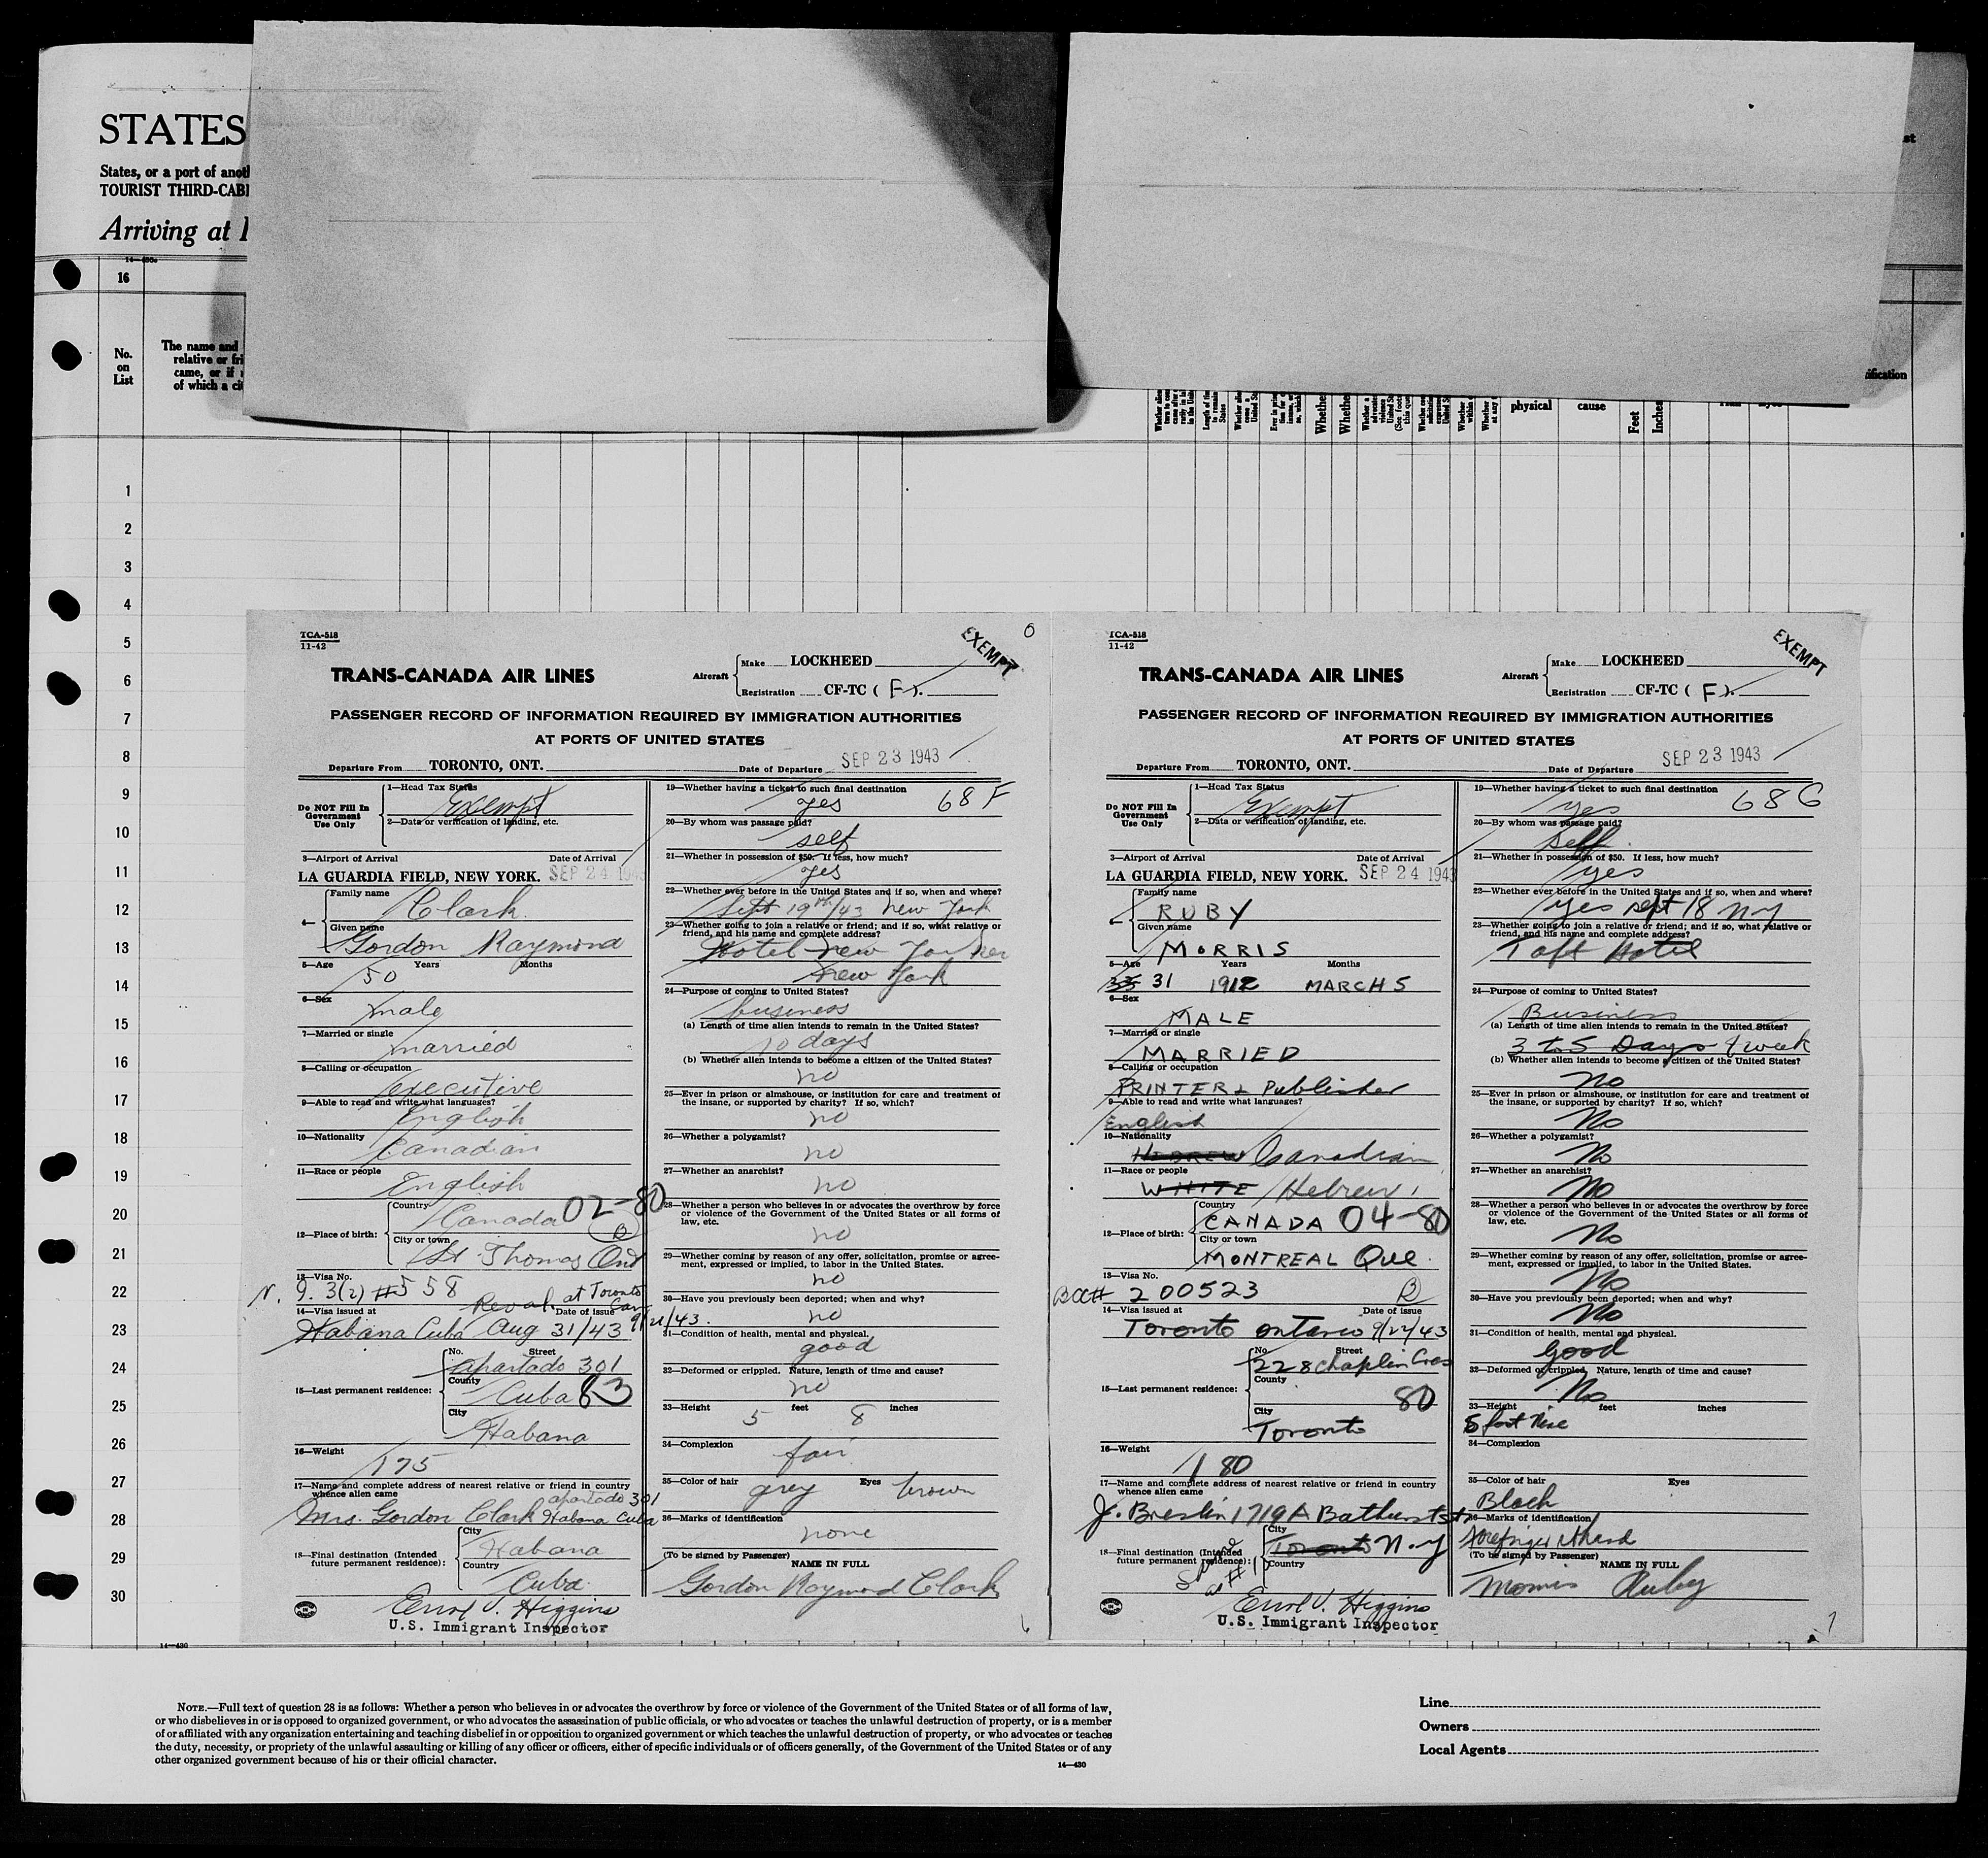 STATES
States, or a port of anot
TOURIST THIRD-CABI
Arriving at
16
No.
on
List
The name and
relative or fri
came, or if
of which a cit
physical
cause
Feet
Inches
1
2
3
4
5
6
7
8
9
10
11
12
13
14
15
16
17
18
19
20
21
22
23
24
25
26
27
28
29
30
14—430
TCA-518
11-42
EXEMPT
TRANS-CANADA AIR LINES
Aircraft
Make LOCKHEED
Registration CF-TC (F).
PASSENGER RECORD OF INFORMATION REQUIRED BY IMMIGRATION AUTHORITIES
AT PORTS OF UNITED STATES
Departure From TORONTO, ONT.
Date of Departure SEP 23 1943
Do NOT Fill In
Government
Use Only
1—Head Tax Status
Exempt
2—Data or verification of landing, etc.
3—Airport of Arrival Date of Arrival
LA GUARDIA FIELD, NEW YORK. SEP 24 1943
4—
Family name
Clark
Given name
Gordon Raymond
5—Age Years Months
50
6—Sex
male
7—Married or single
married
8—Calling or occupation
executive
9—Able to read and write what languages?
English
10—Nationality
Canadian
11—Race or people
English
12—Place of birth:
Country
Canada 02-80
City or town
St. Thomas Ont
13—Visa No.
9. 3(2) #558
Reval. at Toronto Can
9/21/43.
14—Visa issued at Date of issue
Habana Cuba Aug 31/43
15—Last permanent residence:
No. Street
apartado 301
County
Cuba 83
City
Habana
16—Weight
175
17—Name and complete address of nearest relative or friend in country
whence alien came
apartado 301
Mrs. Gordon Clark Habana Cuba
18—Final destination (Intended
future permanent residence):
City
Habana
Country
Cuba
Errol V. Higgins
U.S. Immigrant Inspector
19—Whether having a ticket to such final destination
yes 68 F
20—By whom was passage paid?
self
21—Whether in possession of $50. If less, how much?
yes
22—Whether ever before in the United States and if so, when and where?
Sept 19th/43 New York
23—Whether going to join a relative or friend; and if so, what relative or
friend, and his name and complete address?
Hotel New Yorker
New York
24—Purpose of coming to United States?
business
(a) Length of time alien intends to remain in the United States?
10 days
(b) Whether alien intends to become a citizen of the United States?
no
25—Ever in prison or almshouse, or institution for care and treatment of
the insane, or supported by charity? If so, which?
no
26—Whether a polygamist?
no
27—Whether an anarchist?
no
28—Whether a person who believes in or advocates the overthrow by force
or violence of the Government of the United States or all forms of
law, etc.
no
29—Whether coming by reason of any offer, solicitation, promise or agree-
ment, expressed or implied, to labor in the United States.
no
30—Have you previously been deported; when and why?
no
31—Condition of health, mental and physical.
good
32—Deformed or crippled. Nature, length of time and cause?
no
33—Height 5 feet 8 inches
34—Complexion
fair
35—Color of hair Eyes
grey brown
36—Marks of identification
none
(To be signed by Passenger) NAME IN FULL
Gordon Raymond Clark
TCA-518
11-42
EXEMPT
TRANS-CANADA AIR LINES
Aircraft
Make LOCKHEED
Registration CF-TC (F).
PASSENGER RECORD OF INFORMATION REQUIRED BY IMMIGRATION AUTHORITIES
AT PORTS OF UNITED STATES
Departure From TORONTO, ONT.
Date of Departure SEP 23 1943
Do NOT Fill In
Government
Use Only
1—Head Tax Status
Exempt
2—Data or verification of landing, etc.
3—Airport of Arrival Date of Arrival
LA GUARDIA FIELD, NEW YORK. SEP 24 1943
4—
Family name
RUBY
Given name
MORRIS
5—Age Years Months
31 1912 MARCH 5
6—Sex
MALE
7—Married or single
MARRIED
8—Calling or occupation
PRINTER & Publisher
9—Able to read and write what languages?
English
10—Nationality
HEBREW Canadian
11—Race or people
WHITE Hebrew
12—Place of birth:
Country
CANADA 04-80
City or town
MONTREAL Que.
13—Visa No.
BCC# 200523
14—Visa issued at Date of issue
Toronto Ontario 9/22/43
15—Last permanent residence:
No. Street
228 Chaplin Cres
County
80
City
Toronto
16—Weight
180
17—Name and complete address of nearest relative or friend in country
whence alien came
J. Breslin 1719A Bathurst st
18—Final destination (Intended
future permanent residence):
City
Toronto N.Y
Country
Errol V. Higgins
U.S. Immigrant Inspector
19—Whether having a ticket to such final destination
yes 68 G
20—By whom was passage paid?
Self
21—Whether in possession of $50. If less, how much?
yes
22—Whether ever before in the United States and if so, when and where?
yes Sept 18 NY
23—Whether going to join a relative or friend; and if so, what relative or
friend, and his name and complete address?
Taft Hotel
24—Purpose of coming to United States?
Business
(a) Length of time alien intends to remain in the United States?
3 to 5 Days 1 week
(b) Whether alien intends to become a citizen of the United States?
No
25—Ever in prison or almshouse, or institution for care and treatment of
the insane, or supported by charity? If so, which?
No
26—Whether a polygamist?
No
27—Whether an anarchist?
No
28—Whether a person who believes in or advocates the overthrow by force
or violence of the Government of the United States or all forms of
law, etc.
No
29—Whether coming by reason of any offer, solicitation, promise or agree-
ment, expressed or implied, to labor in the United States.
No
30—Have you previously been deported; when and why?
No
31—Condition of health, mental and physical.
Good
32—Deformed or crippled. Nature, length of time and cause?
No
33—Height feet inches
5 foot Nine
34—Complexion
35—Color of hair Eyes
Black
36—Marks of identification
forefinger
(To be signed by Passenger) NAME IN FULL
Morris Ruby
NOTE.—Full text of question 28 is as follows: Whether a person who believes in or advocates the overthrow by force or violence of the Government of the United States or of all forms of law,
or who disbelieves in or is opposed to organized government, or who advocates the assassination of public officials, or who advocates or teaches the unlawful destruction of property, or is a member
of or affiliated with any organization entertaining and teaching disbelief in or opposition to organized government or which teaches the unlawful destruction of property, or who advocates or teaches
the duty, necessity, or propriety of the unlawful assaulting or killing of any officer or officers, either of specific individuals or of officers generally, of the Government of the United States or of any
other organized government because of his or their official character.
14—430
Line
Owners
Local Agents